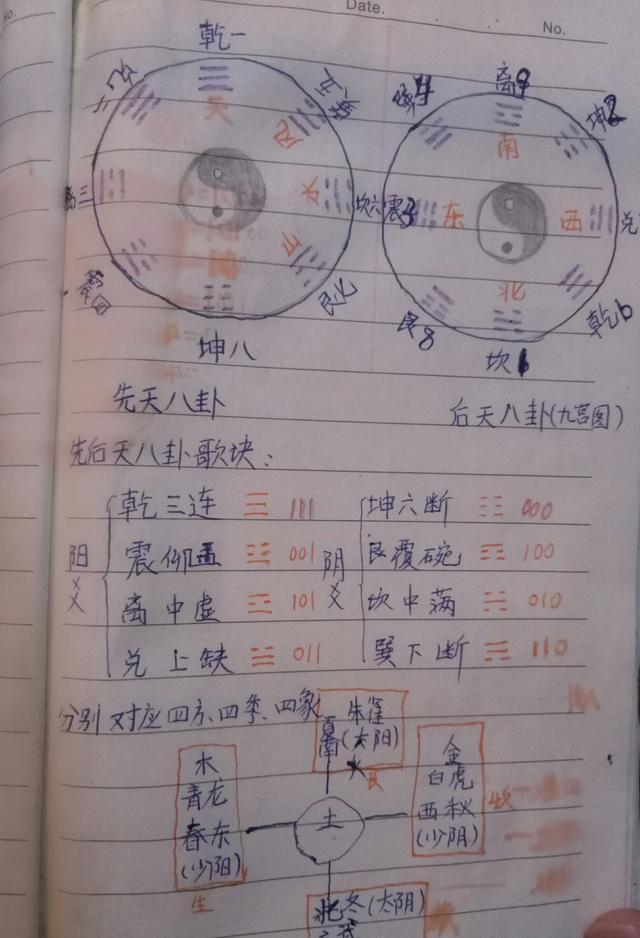 Date.
No.
乾一
天
水
坎六
山
艮七
坤八
先天八卦
离9
坤2
南
震3
东
西
兑
北
艮8
乾6
坎
后天八卦(九宫图)
先后天八卦歌块:
乾三连 ☰ 111 坤六断 ☷ 000
震仰盂 ☳ 001 艮覆碗 ☶ 100
阳爻 阴爻
离中虚 ☲ 101 坎中满 ☵ 010
兑上缺 ☱ 011 巽下断 ☴ 110
分别对应四方、四季、四象
朱雀
夏南(太阳)
火
长
木
青龙
春东
(少阳)
生
土
金
白虎
西秋
(少阴)
收
北冬(太阴)